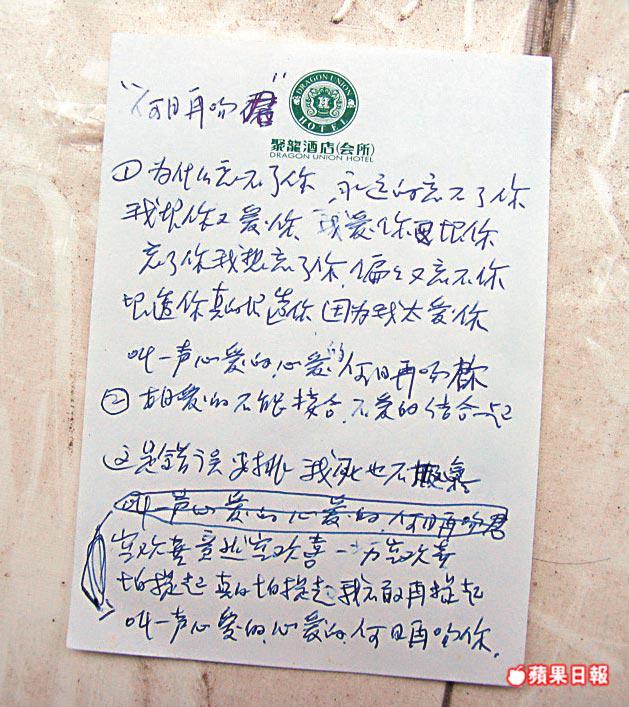 "何日再吻君"
DRAGON UNION
HOTEL
聚龍酒店(会所)
DRAGON UNION HOTEL
①为什么忘不了你 永远的忘不了你
我恨你又爱你 我爱你又恨你
忘了你我想忘了你,偏又忘不你
恨透你真的恨透你 因为我太爱你
叫一声心爱的,心爱的何日再吻你
②相爱的不能接合,不爱的结合一起
这是错误安排 我死也不服气
叫一声心爱的心爱的何日再吻君
空欢喜竟然空欢喜一场空欢喜
怕提起真的怕提起我不敢再提起
叫一声心爱的,心爱的,何日再吻你,
蘋果日報